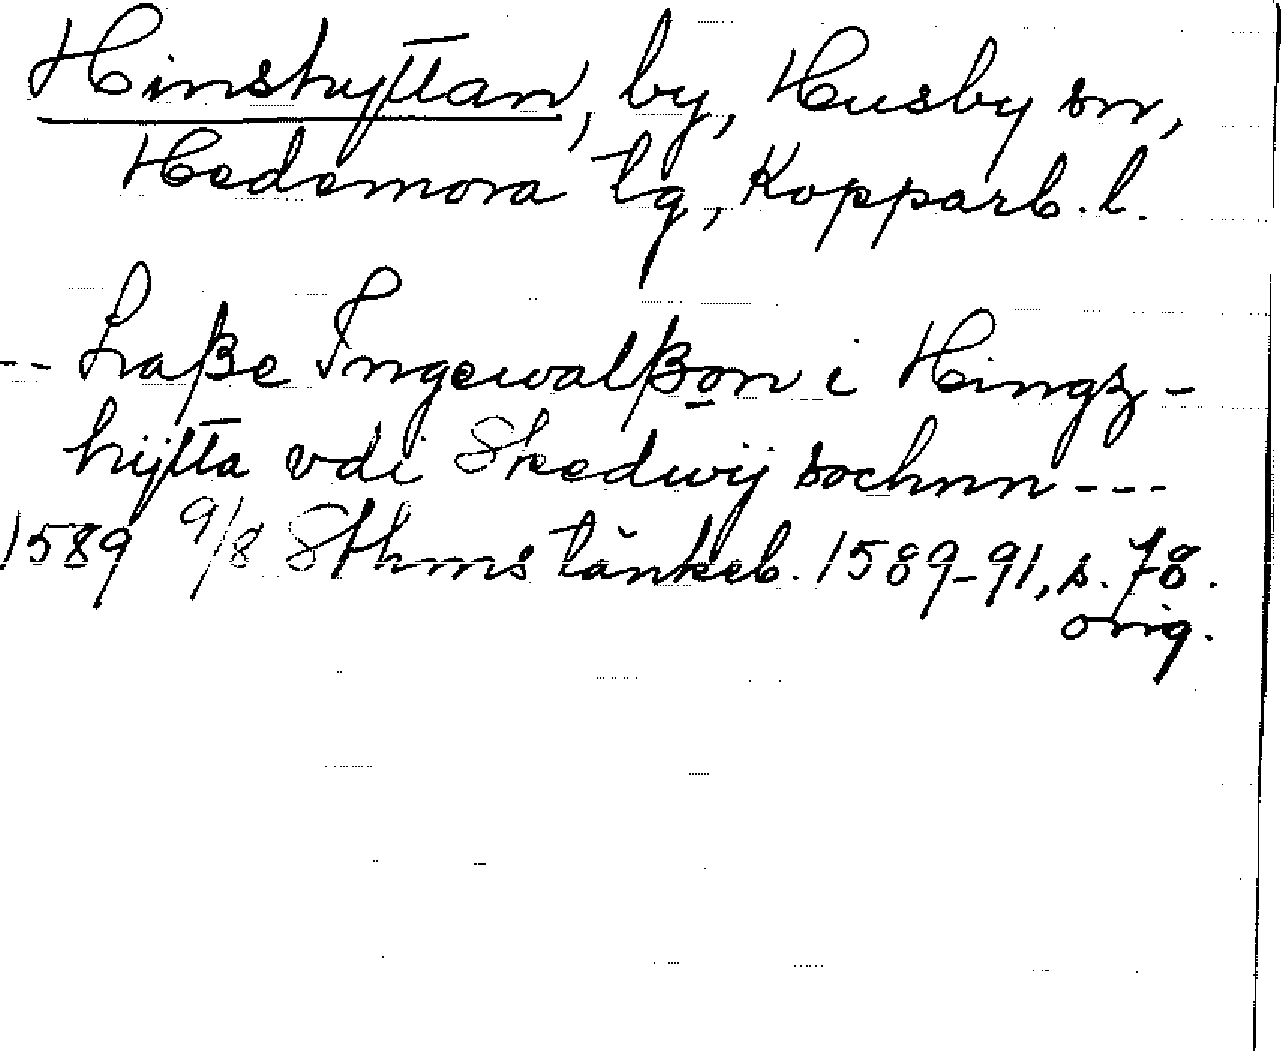 Hinshyttan, by, Husby sn,
Hedemora tg, Kopparb. l.
-- Laße Ingewalßon i Hingz-
hijtta vdi Skedwij sochnn ---
1589 9/8 Sthms tänkeb. 1589-91, s. 78.
orig.